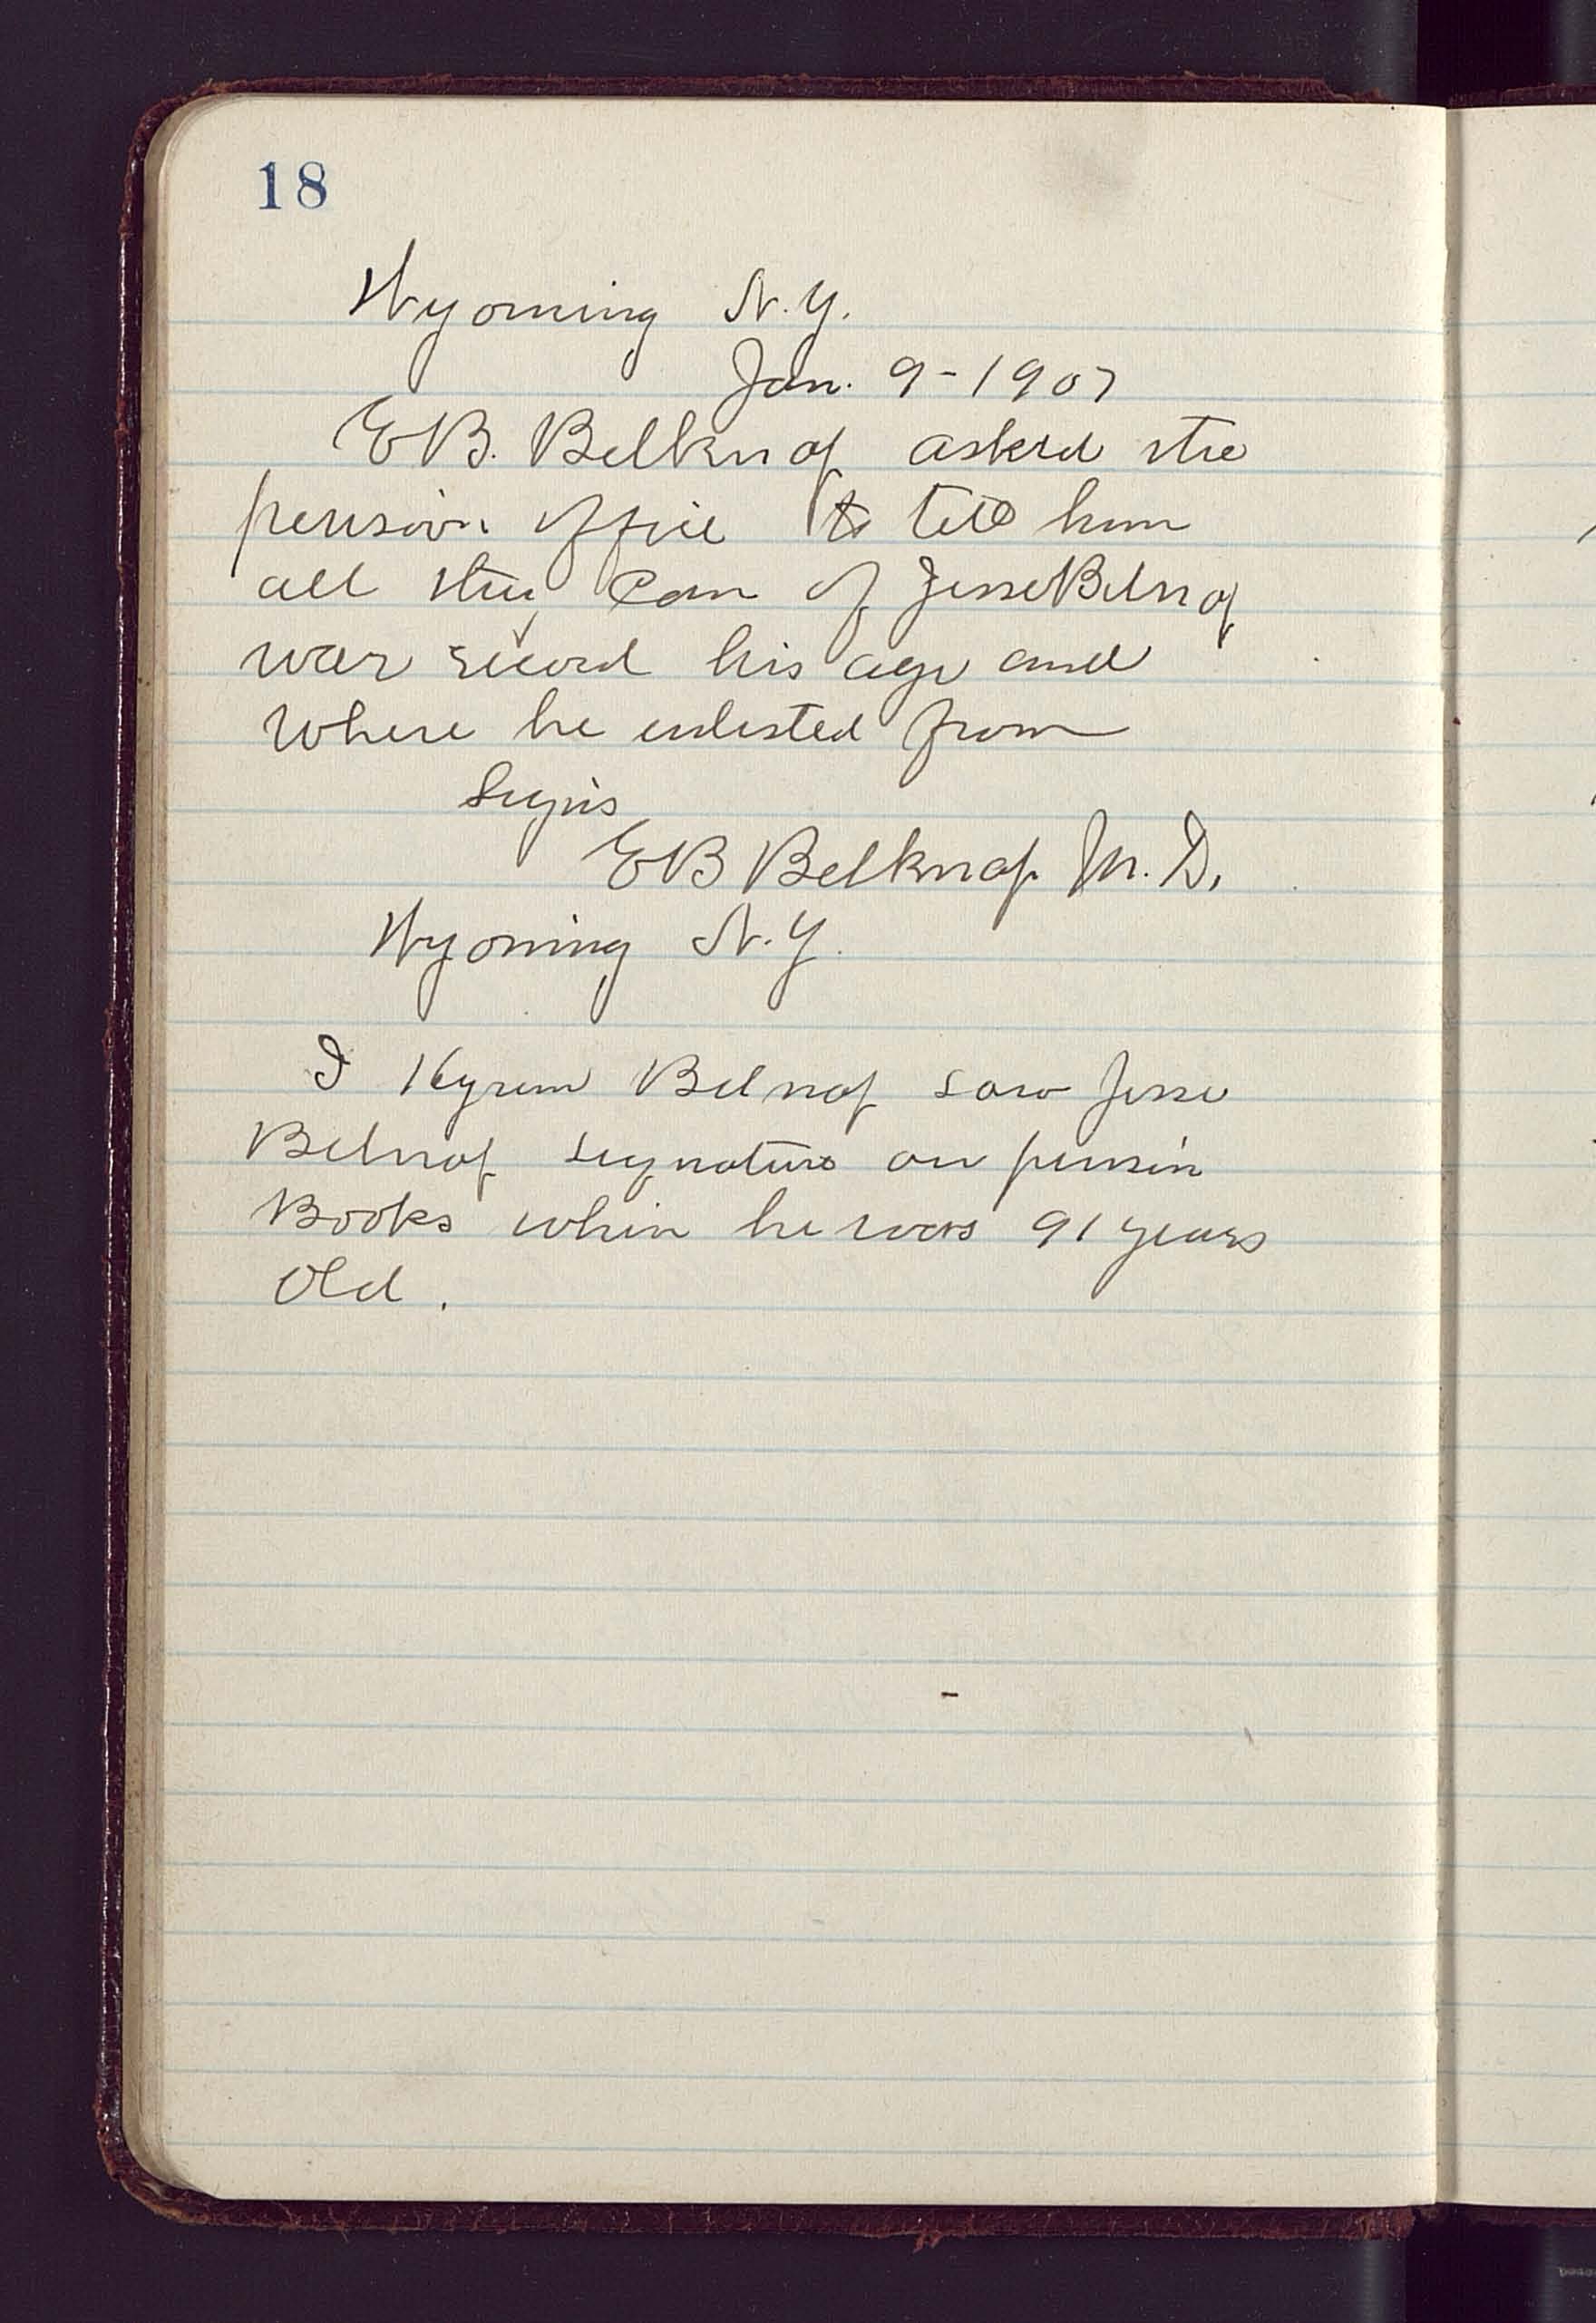 18
Wyoming N.Y.
Jan. 9-1907
E B. Belknap asked the
pension office to tell him
all they can of Jesse Belnap
war record his age and
where he enlisted from
Signs
E B Belknap M. D.
Wyoming N.Y.
I Hyrum Belnap saw Jesse
Belnap signature on pension
Books when he was 91 years
old.